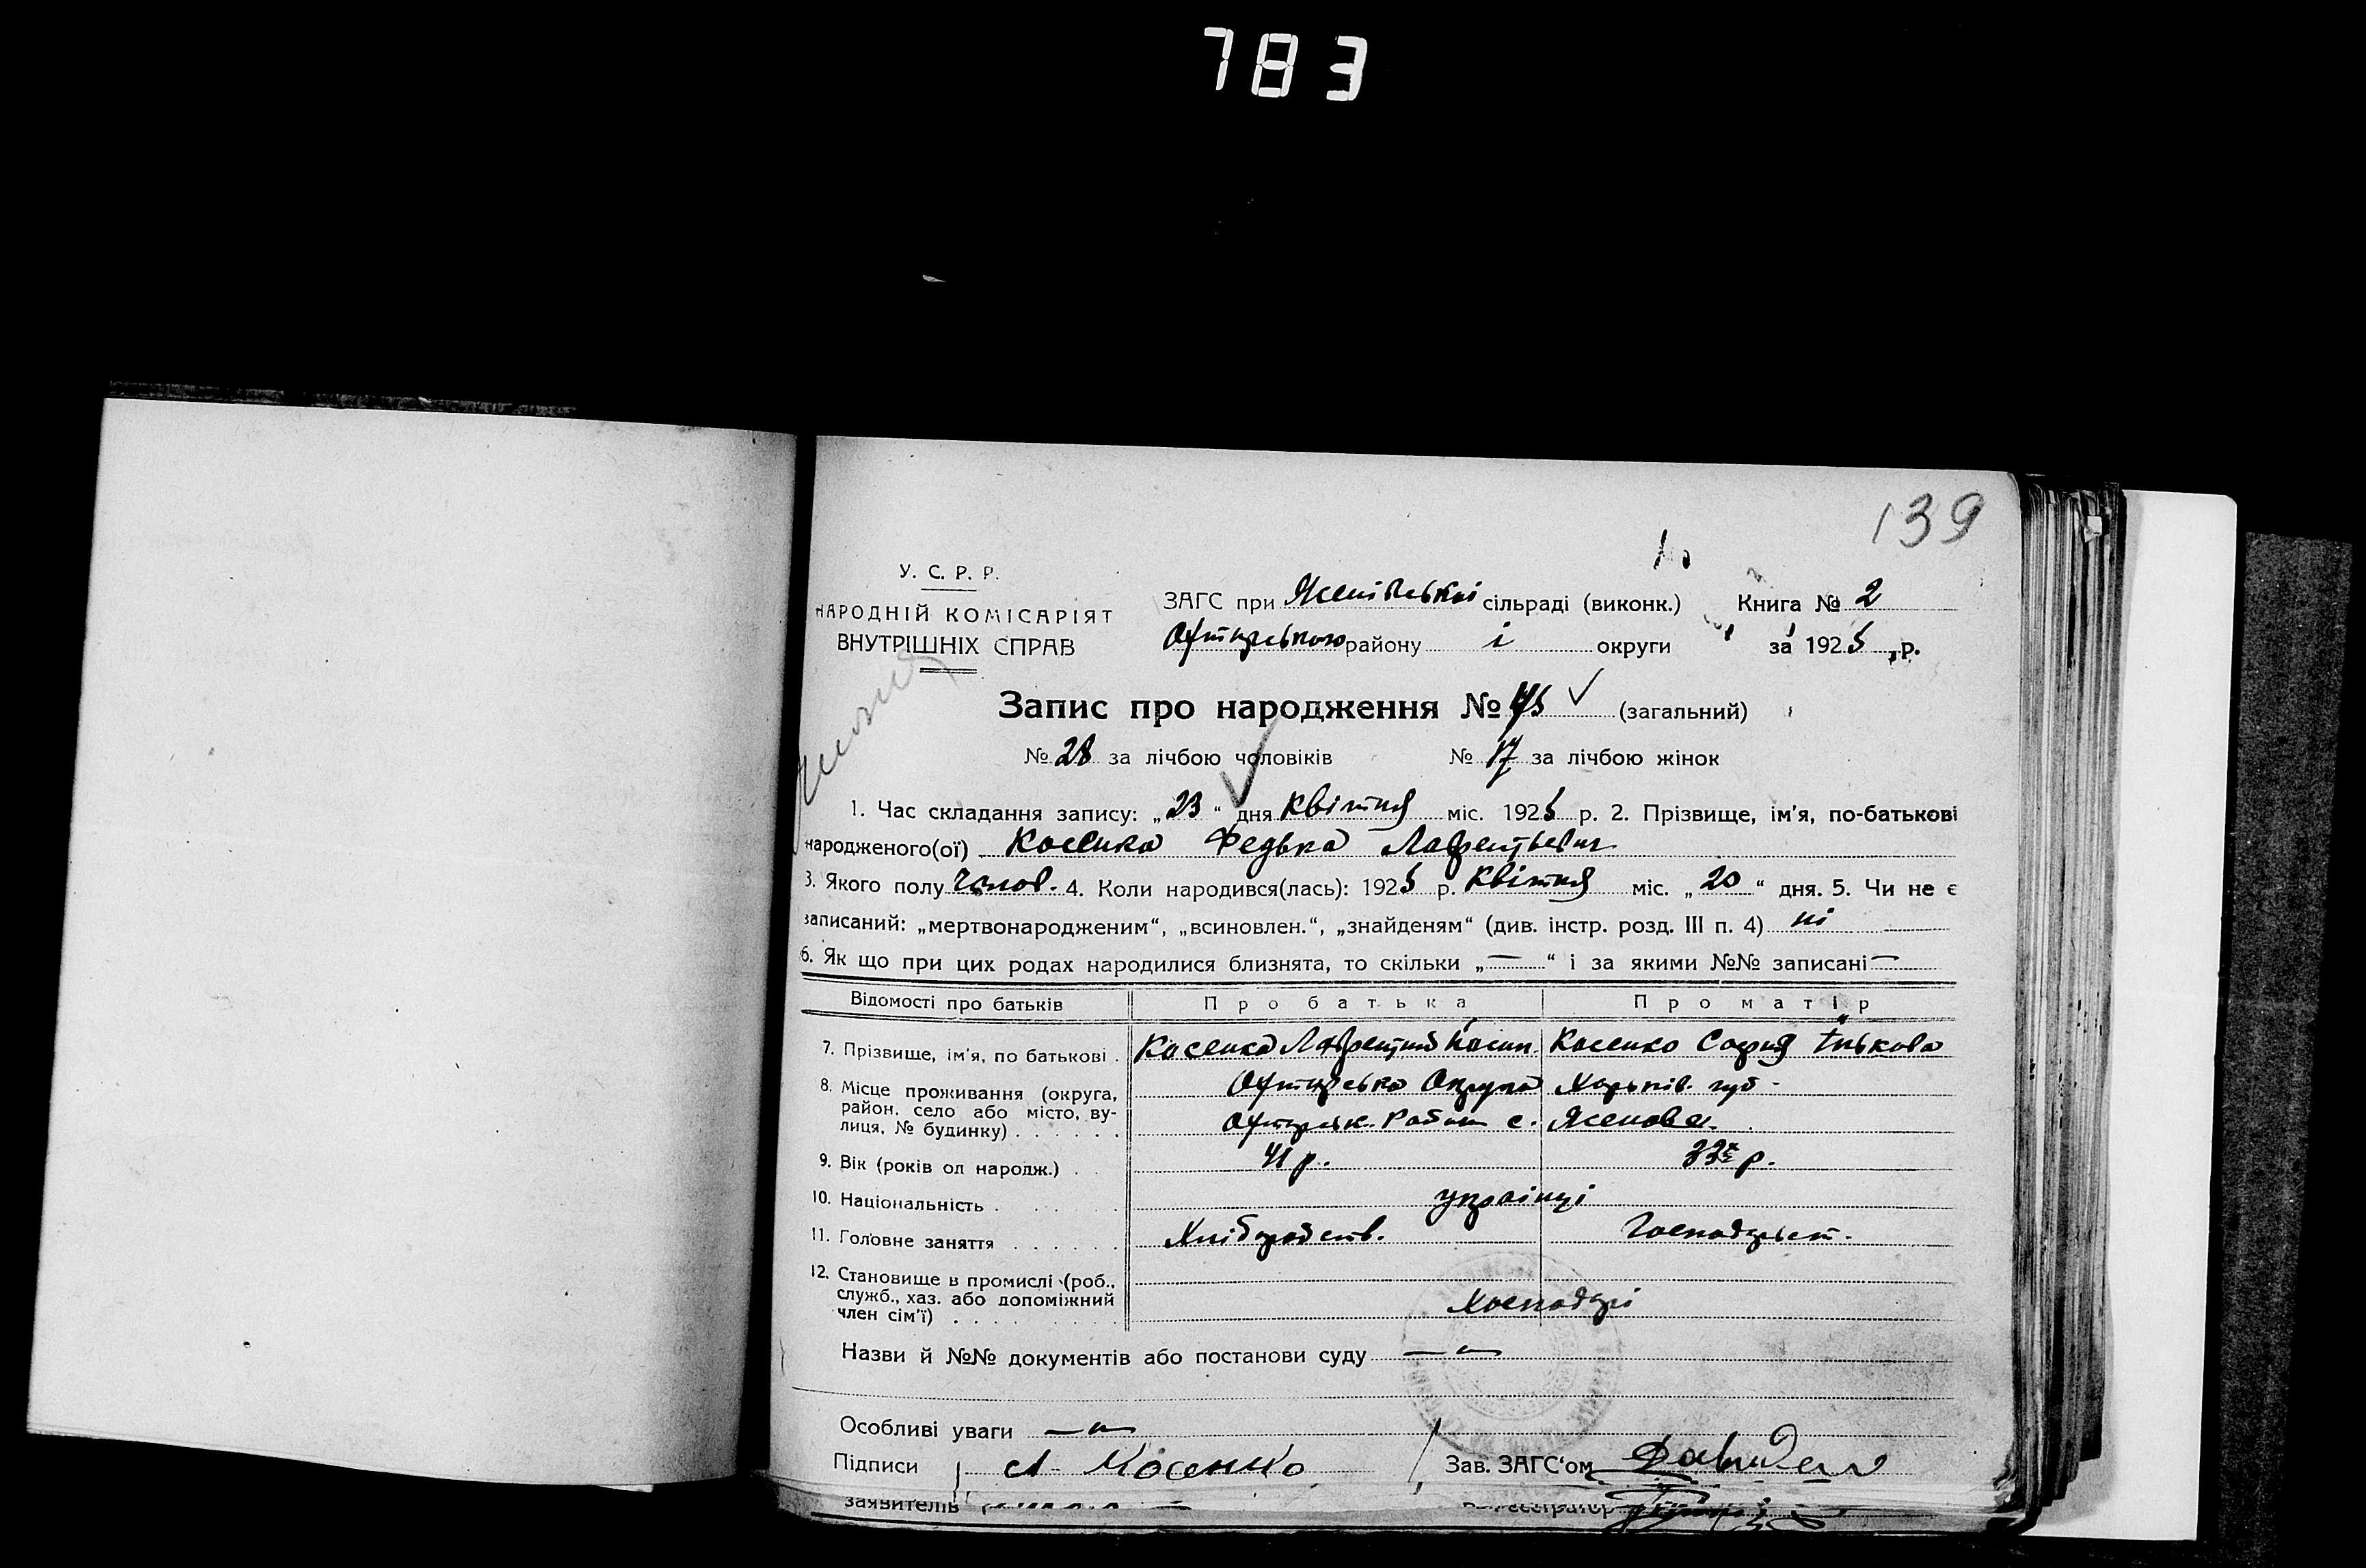 783
139
У. С. Р. Р.
НАРОДНІЙ КОМІСАРІЯТ
ВНУТРІШНІХ СПРАВ
ЗАГС при сільраді (виконк.) Книга № 2
району і округи за 1925 р.
Запис про народження № 45 (загальний)
№ 28 за лічбою чоловіків № 17 за лічбою жінок
1. Час складання запису: „23“ дня Квітня міс. 1925 р. 2. Прізвище, ім'я, по-батькові
народженого(ої) Косенко Федька Лаврентьевич
3. Якого полу чолов. 4. Коли народився(лась): 1925 р. Квітня міс. „20“ дня. 5. Чи не є
записаний: „мертвонародженим“, „всиновлен.“, „знайденям“ (див. інстр. розд. III п. 4) ні
6. Як що при цих родах народилися близнята, то скільки „—“ і за якими №№ записані —
Відомості про батьків Про батька Про матір
7. Прізвище, ім'я, по батькові . Косенко Лаврентий Косенко София
8. Місце проживання (округа, Округа Харьків. губ -
район, село або місто, ву-
лиця, № будинку) . . . . . . Район с. Ясенове.
9. Вік (років од народж.) . . 41 р. р.
10. Національність . . . . . українці
11. Головне заняття . . . . . . Хліборобств. Господарст.
12. Становище в промислі (роб.,
служб., хаз. або допоміжний
член сім'ї) . . . . . . . . . Хосподарі
Назви й №№ документів або постанови суду — " —
Особливі уваги — " —
Підписи Л. Косенко Зав. ЗАГС'ом
заявителів